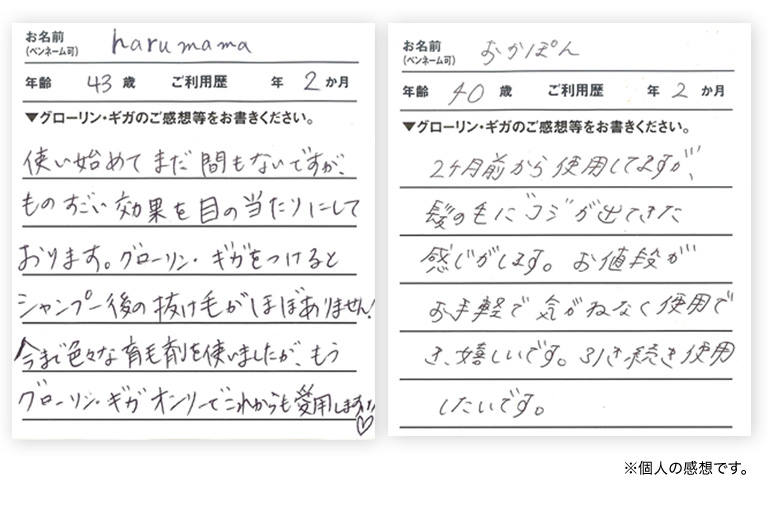 お名前
(ペンネーム可) harumama
年齢 43 歳 ご利用歴 年 2 か月
▼グローリン・ギガのご感想等をお書きください。
使い始めてまだ間もないですが、
ものすごい効果を目の当たりにして
おります。グローリン・ギガをつけると
シャンプー後の抜け毛がほぼありません!
今まで色々な育毛剤を使いましたが、もう
グローリン・ギガオンリーでこれからも愛用します!!♡
お名前
(ペンネーム可) おかぽん
年齢 40 歳 ご利用歴 年 2 か月
▼グローリン・ギガのご感想等をお書きください。
2ヶ月前から使用してますが、
髪の毛に"コシ"が出てきた
感じがします。お値段が
お手軽で気がねなく使用で
き、嬉しいです。引き続き使用
したいです。
※個人の感想です。